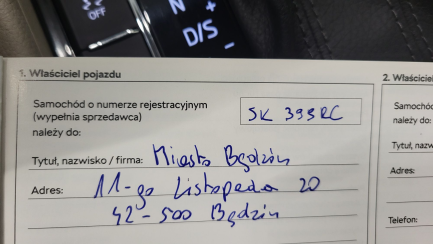 OFF
N
+
D/S
-
1. Właściciel pojazdu
2. Właściciel
Samochód o numerze rejestracyjnym
(wypełnia sprzedawca)
należy do:
SK 393RC
Samochód
należy do:
Tytuł, nazwisko / firma: Miasto Będzin
Tytuł, nazw
Adres: 11-go Listopada 20
Adres:
42-500 Będzin
Telefon: